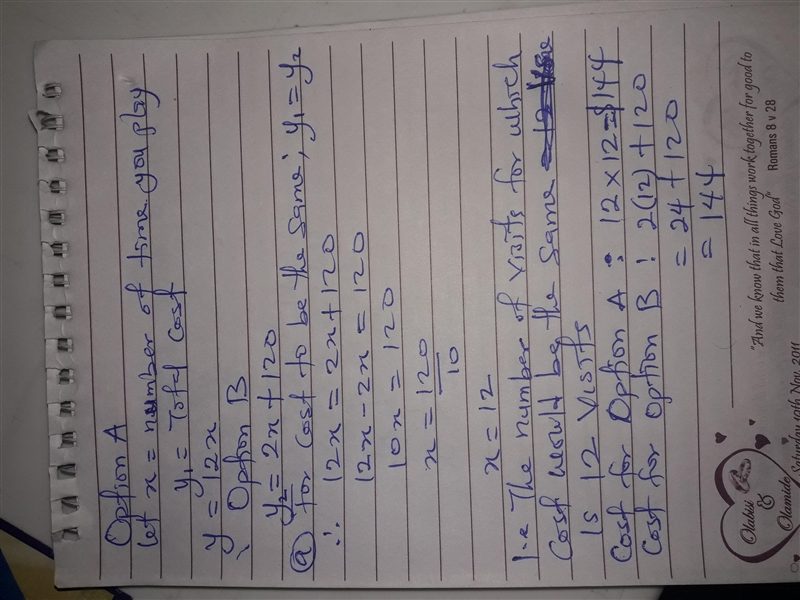 Option A
let x = number of time you play
y₁ = Total Cost
y = 12x
Option B
y₂ = 2x + 120
ⓐ for cost to be the same; y₁ = y₂
∴ 12x = 2x + 120
12x - 2x = 120
10x = 120
x = 120
10
x = 12
I.e The number of visits for which
Cost would be the same
Is 12 Visits
Cost for Option A : 12 x 12 = $144
Cost for Option B : 2(12) + 120
= 24 + 120
= 144
"And we know that in all things work together for good to
them that Love God"
Romans 8 v 28
Olabisi
&
Olamide
Saturday 19th Nov. 2011